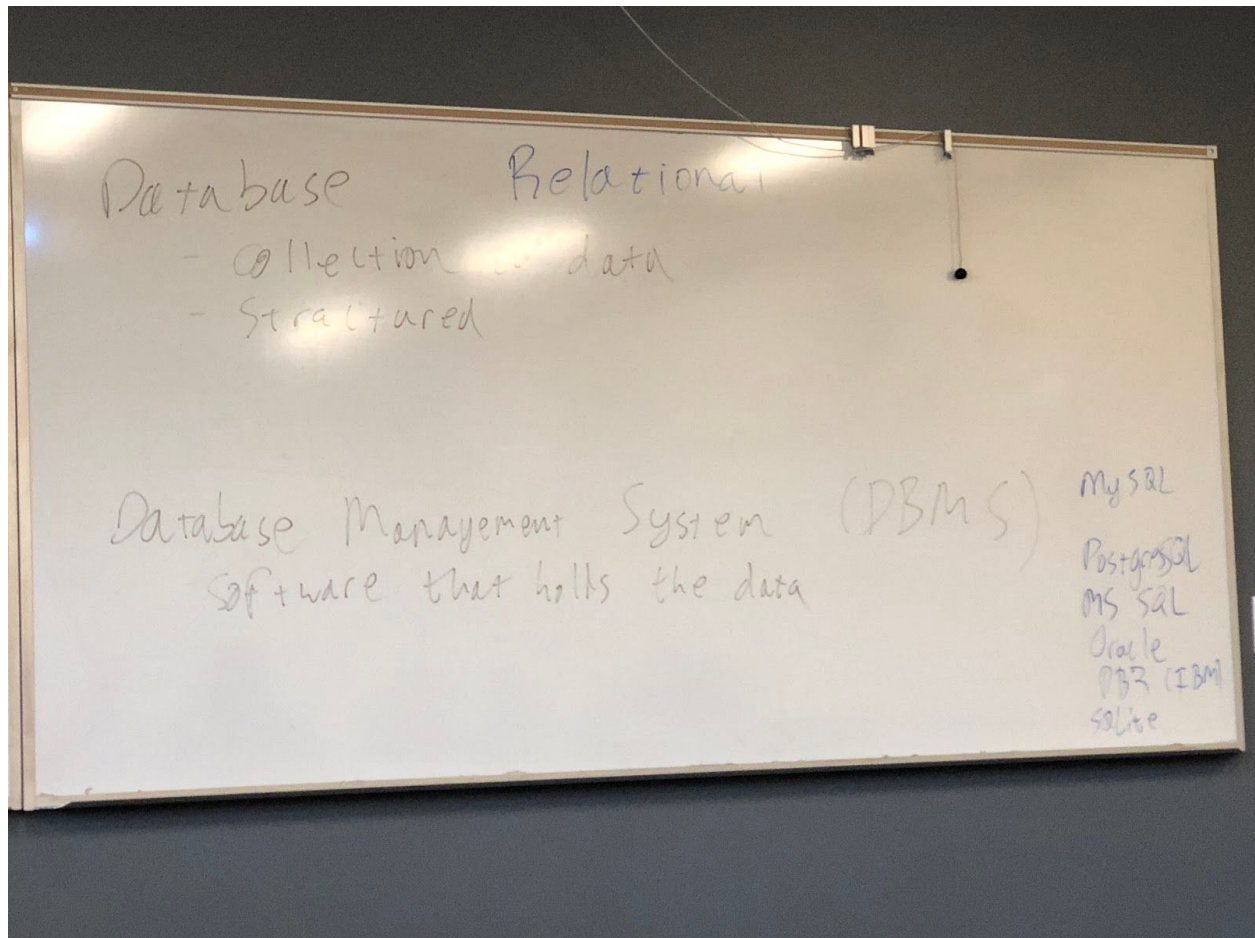 Database Relational
- Collection data
- Structured
Database Management System (DBMS)
Software that holds the data
MySQL
PostgresSQL
MS SQL
Oracle
DB2 (IBM)
SQLite